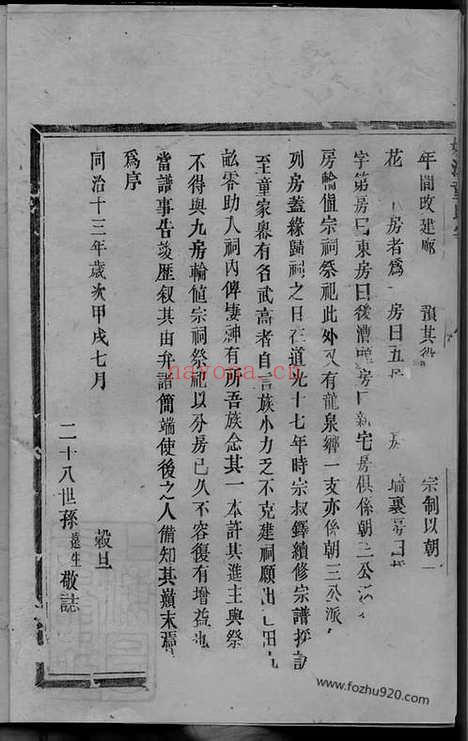 年間改建廊 預其 宗制以朝
花 房者爲 房曰五 房 墻裏房曰
字第房曰東房曰後漕 房曰新宅房俱係朝二公
房輪值宗祠祭祀此外又有龍泉鄉一支亦係朝三公派
列房蓋緣歸祠之日在道光十七年時宗叔鐸續修宗譜採訪
至童家舉有名武高者自言族小力乏不克建祠願出 田
畝零助入祠內俾棲神有所吾族念其一本許其進主與祭
不得與九房輪值宗祠祭祀以分房已久不容復有增益也
當譜事告竣歷叙其由弁諸簡端使後之人備知其巔末焉
爲序
同治十三年歲次甲戌七月 穀旦
二十八世孫遠生敬誌
nayona.cn
www.fozhu920.com